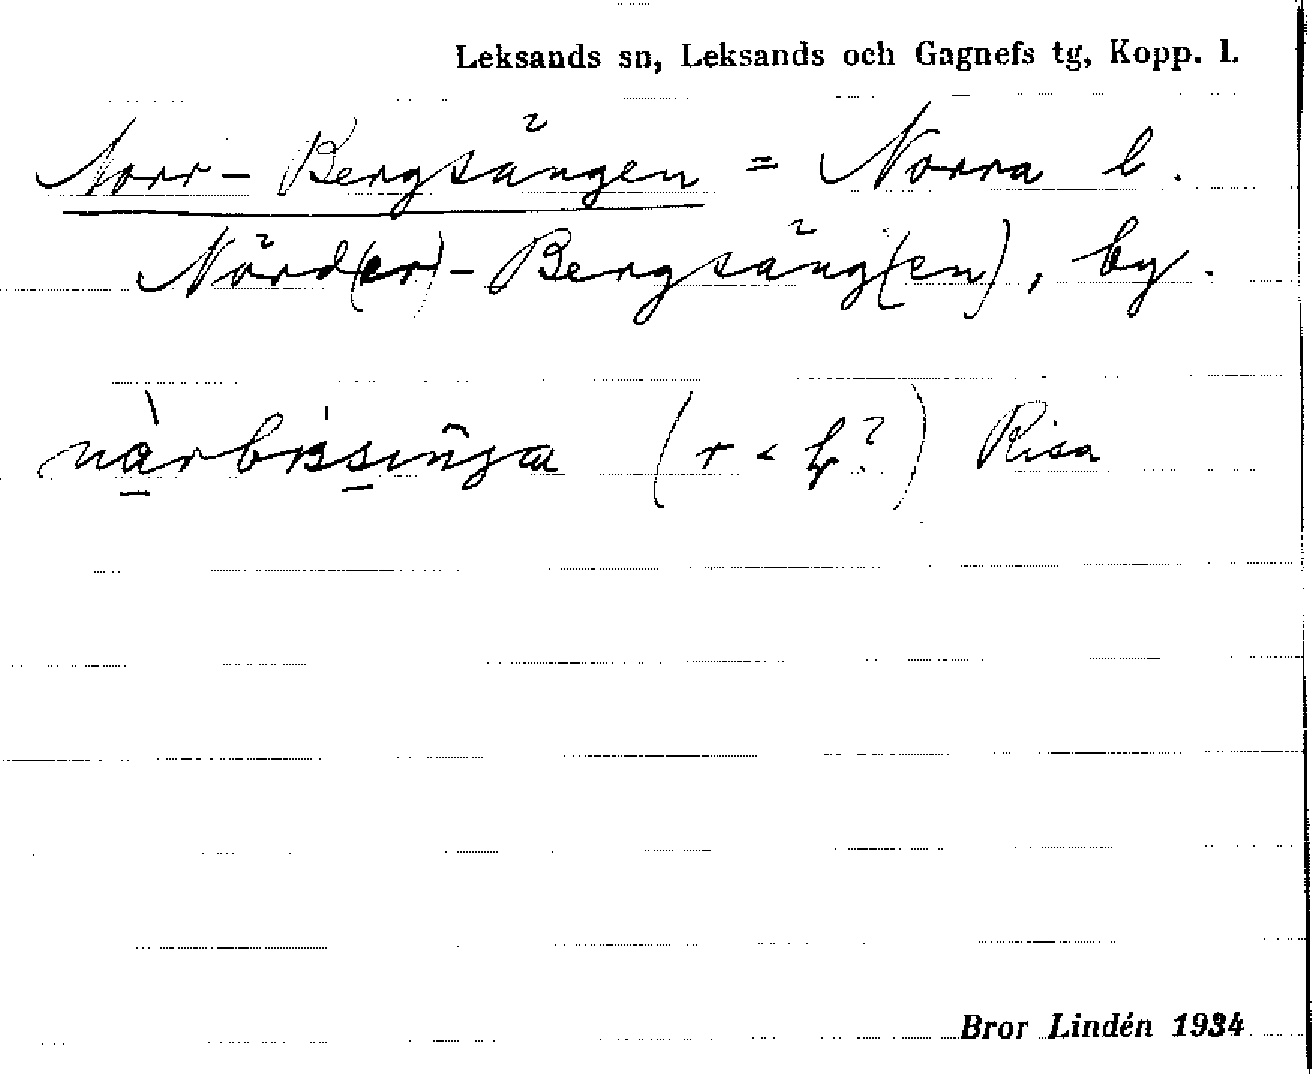 Leksands sn, Leksands och Gagnefs tg, Kopp. l.
Norr-Bergsängen = Norra b.
Nörd(er)-Bergsäng(en), by.
(r < ?) Risa
Bror Lindén 1934